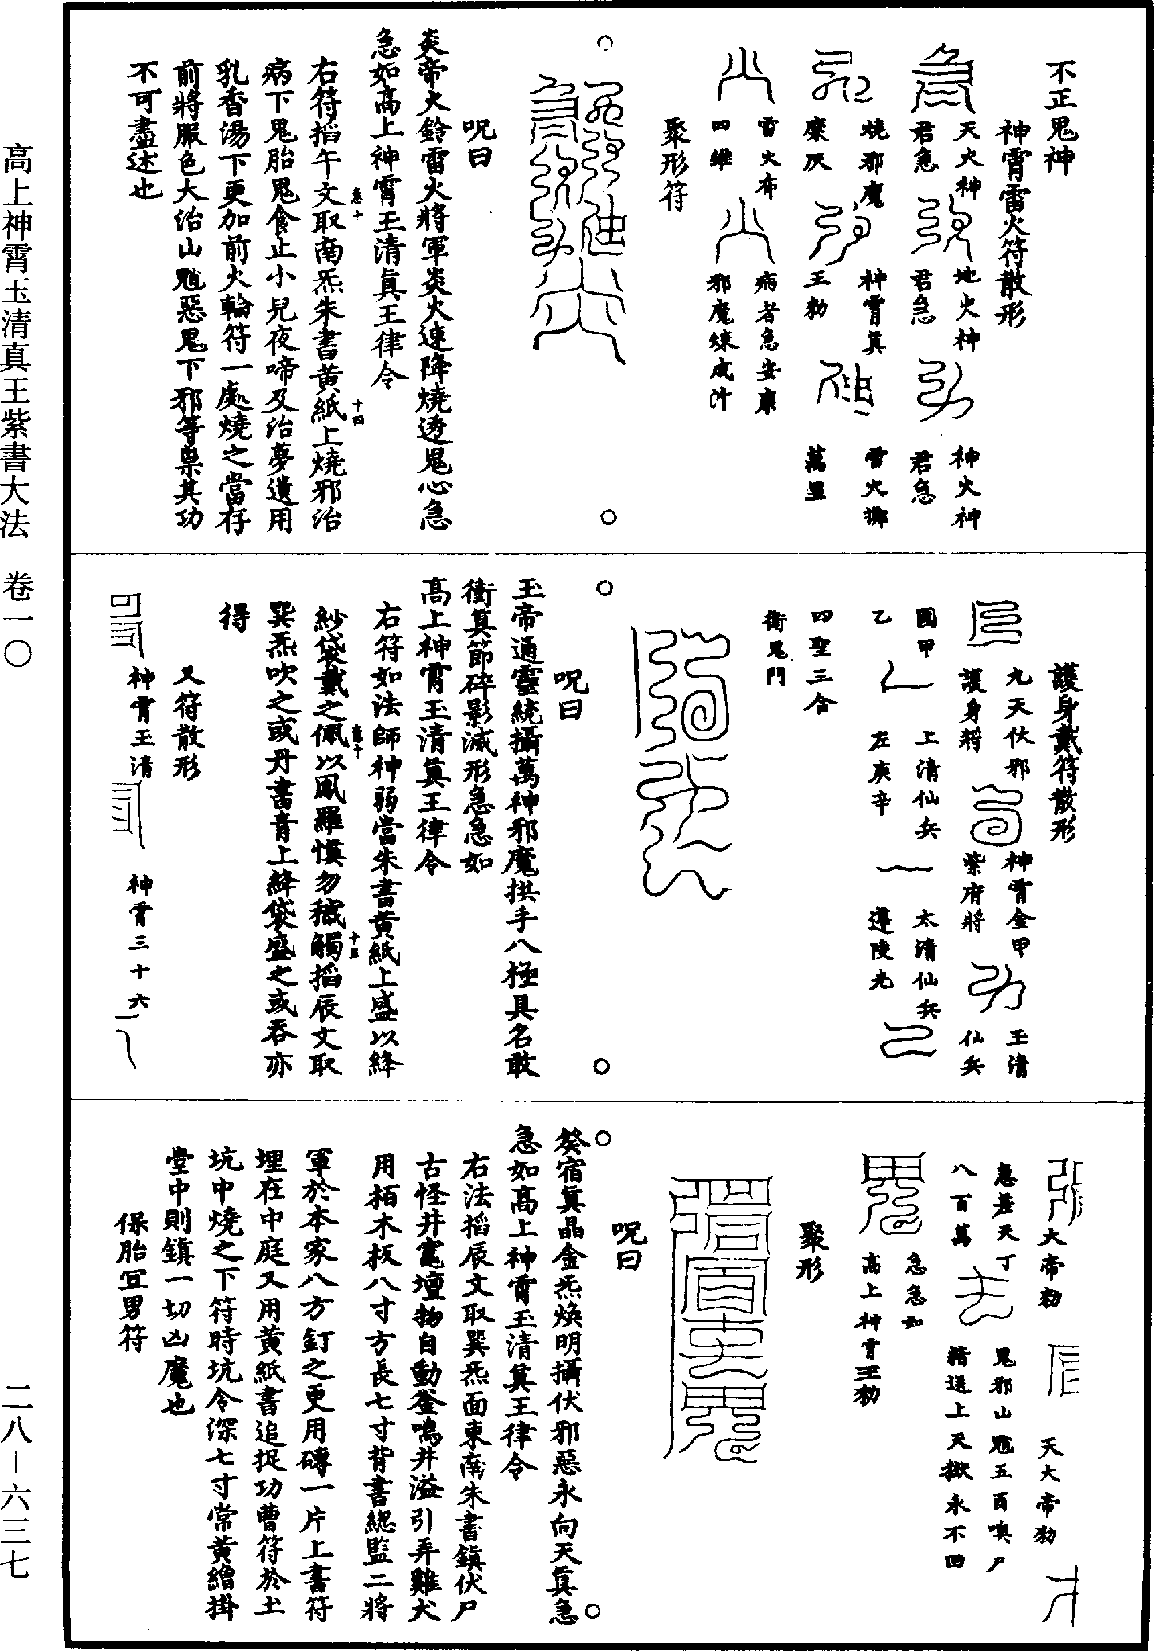 高上神霄玉清真王紫書大法　卷一〇
二八—六三七
不正鬼神
神霄雷火符散形
天火神
君急
地火神
君急
神火神
君急
燒邪魔
糜灰
神霄真
王勑
雷火擲
萬里
雷火布
四維
病者急安康
邪魔煉成汁
聚形符
呪曰
炎帝火鈴雷火將軍炎火速降燒透鬼心急
急如高上神霄玉清真王律令
右符掐午文取南炁朱書黃紙上燒邪治
病下鬼胎鬼食止小兒夜啼及治夢遺用
乳香湯下更加前火輪符一處燒之當存
前將服色大治山魈惡鬼下邪等祟其功
不可盡述也
卷十
十四
護身戴符散形
九天伏邪
護身將
神霄金甲
紫府將
玉清
仙兵
上清仙兵
左庚辛
太清仙兵
遵陵光
國甲
乙
四聖三合
衛鬼門
呪曰
玉帝通靈統攝萬神邪魔拱手八極具名敢
衝真節碎影滅形急急如
高上神霄玉清真王律令
右符如法師神弱當朱書黃紙上盛以絳
紗袋戴之佩以鳳羅慎勿穢觸掐辰文取
巽炁吹之或丹書青上絳袋盛之或吞亦
得
卷十
十五
又符散形
神霄玉清
神霄三十六
大帝勑
天大帝勑
急差天丁
八百萬
鬼邪山魈五酉喚尸
精送上天獄永不回
急急如
高上神霄王勑
聚形
呪曰
癸宿真晶金炁煥明攝伏邪惡永向天真急
急如高上神霄玉清真王律令
右法掐辰文取巽炁面東南朱書鎮伏尸
古怪井竈壇物自動釜鳴井溢引弄雞犬
用栢木板八寸方長七寸背書總監二將
軍於本家八方釘之更用磚一片上書符
埋在中庭又用黃紙書追捉功曹符於土
坑中燒之下符時坑令深七寸常黃繒掛
堂中則鎮一切凶魔也
保胎宜男符